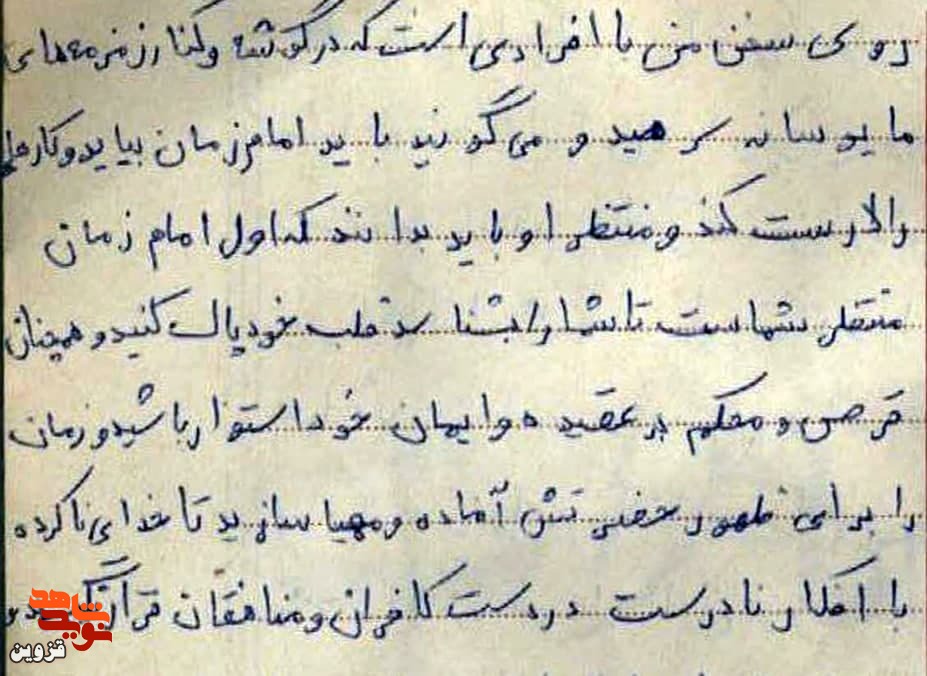 روی سخن من با افرادی است که در گوشه و کنار زمزمه‌های
مایوسانه سر می‌دهید و می‌گوئید باید امام زمان بیاید و کارها
را درست کند و منتظر او باید بدانند که اول امام زمان
منتظر شماست تا شما را بشناسد قلب خود پاک کنید و همچنان
قرص و محکم بر عقیده و ایمان خود استوار باشید و زمان
را برای ظهور حضرتش آماده و مهیا سازید تا خدای ناکرده
با افکار نادرست در دست کافران و منافقان قرار
نوید شاهد
قزوین